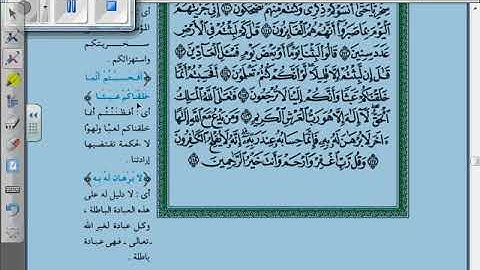 سِخْرِيًّا حَتَّىٰٓ أَنسَوْكُمْ ذِكْرِى وَكُنتُم مِّنْهُمْ تَضْحَكُونَ ۝ إِنِّى جَزَيْتُهُمُ
ٱلْيَوْمَ بِمَا صَبَرُوٓا۟ أَنَّهُمْ هُمُ ٱلْفَآئِزُونَ ۝ قَٰلَ كَمْ لَبِثْتُمْ فِى ٱلْأَرْضِ
عَدَدَ سِنِينَ ۝ قَالُوا۟ لَبِثْنَا يَوْمًا أَوْ بَعْضَ يَوْمٍ فَسْـَٔلِ ٱلْعَآدِّينَ ۝
قَٰلَ إِن لَّبِثْتُمْ إِلَّا قَلِيلًا لَّوْ أَنَّكُمْ كُنتُمْ تَعْلَمُونَ ۝ أَفَحَسِبْتُمْ أَنَّمَا
خَلَقْنَٰكُمْ عَبَثًا وَأَنَّكُمْ إِلَيْنَا لَا تُرْجَعُونَ ۝ فَتَعَٰلَى ٱللَّهُ ٱلْمَلِكُ
ٱلْحَقُّ لَآ إِلَٰهَ إِلَّا هُوَ رَبُّ ٱلْعَرْشِ ٱلْكَرِيمِ ۝ وَمَن يَدْعُ مَعَ ٱللَّهِ إِلَٰهًا
ءَاخَرَ لَا بُرْهَٰنَ لَهُۥ بِهِۦ فَإِنَّمَا حِسَابُهُۥ عِندَ رَبِّهِۦٓ إِنَّهُۥ لَا يُفْلِحُ ٱلْكَٰفِرُونَ
۝ وَقُل رَّبِّ ٱغْفِرْ وَٱرْحَمْ وَأَنتَ خَيْرُ ٱلرَّٰحِمِينَ ۝
سخريتكم
واستهزائكم .
﴿أفحسبتم أنما
خلقناكم عبثا﴾
أى : أفظننتم أنما
خلقناكم لعبًا ولهوًا
لا لحكمة تقتضيها
إرادتنا .
﴿لا برهان له به﴾
أى : لا دليل له على
هذه العبادة الباطلة ،
وكل عبادة لغير الله
-تعالى- فهى عبادة
باطلة .